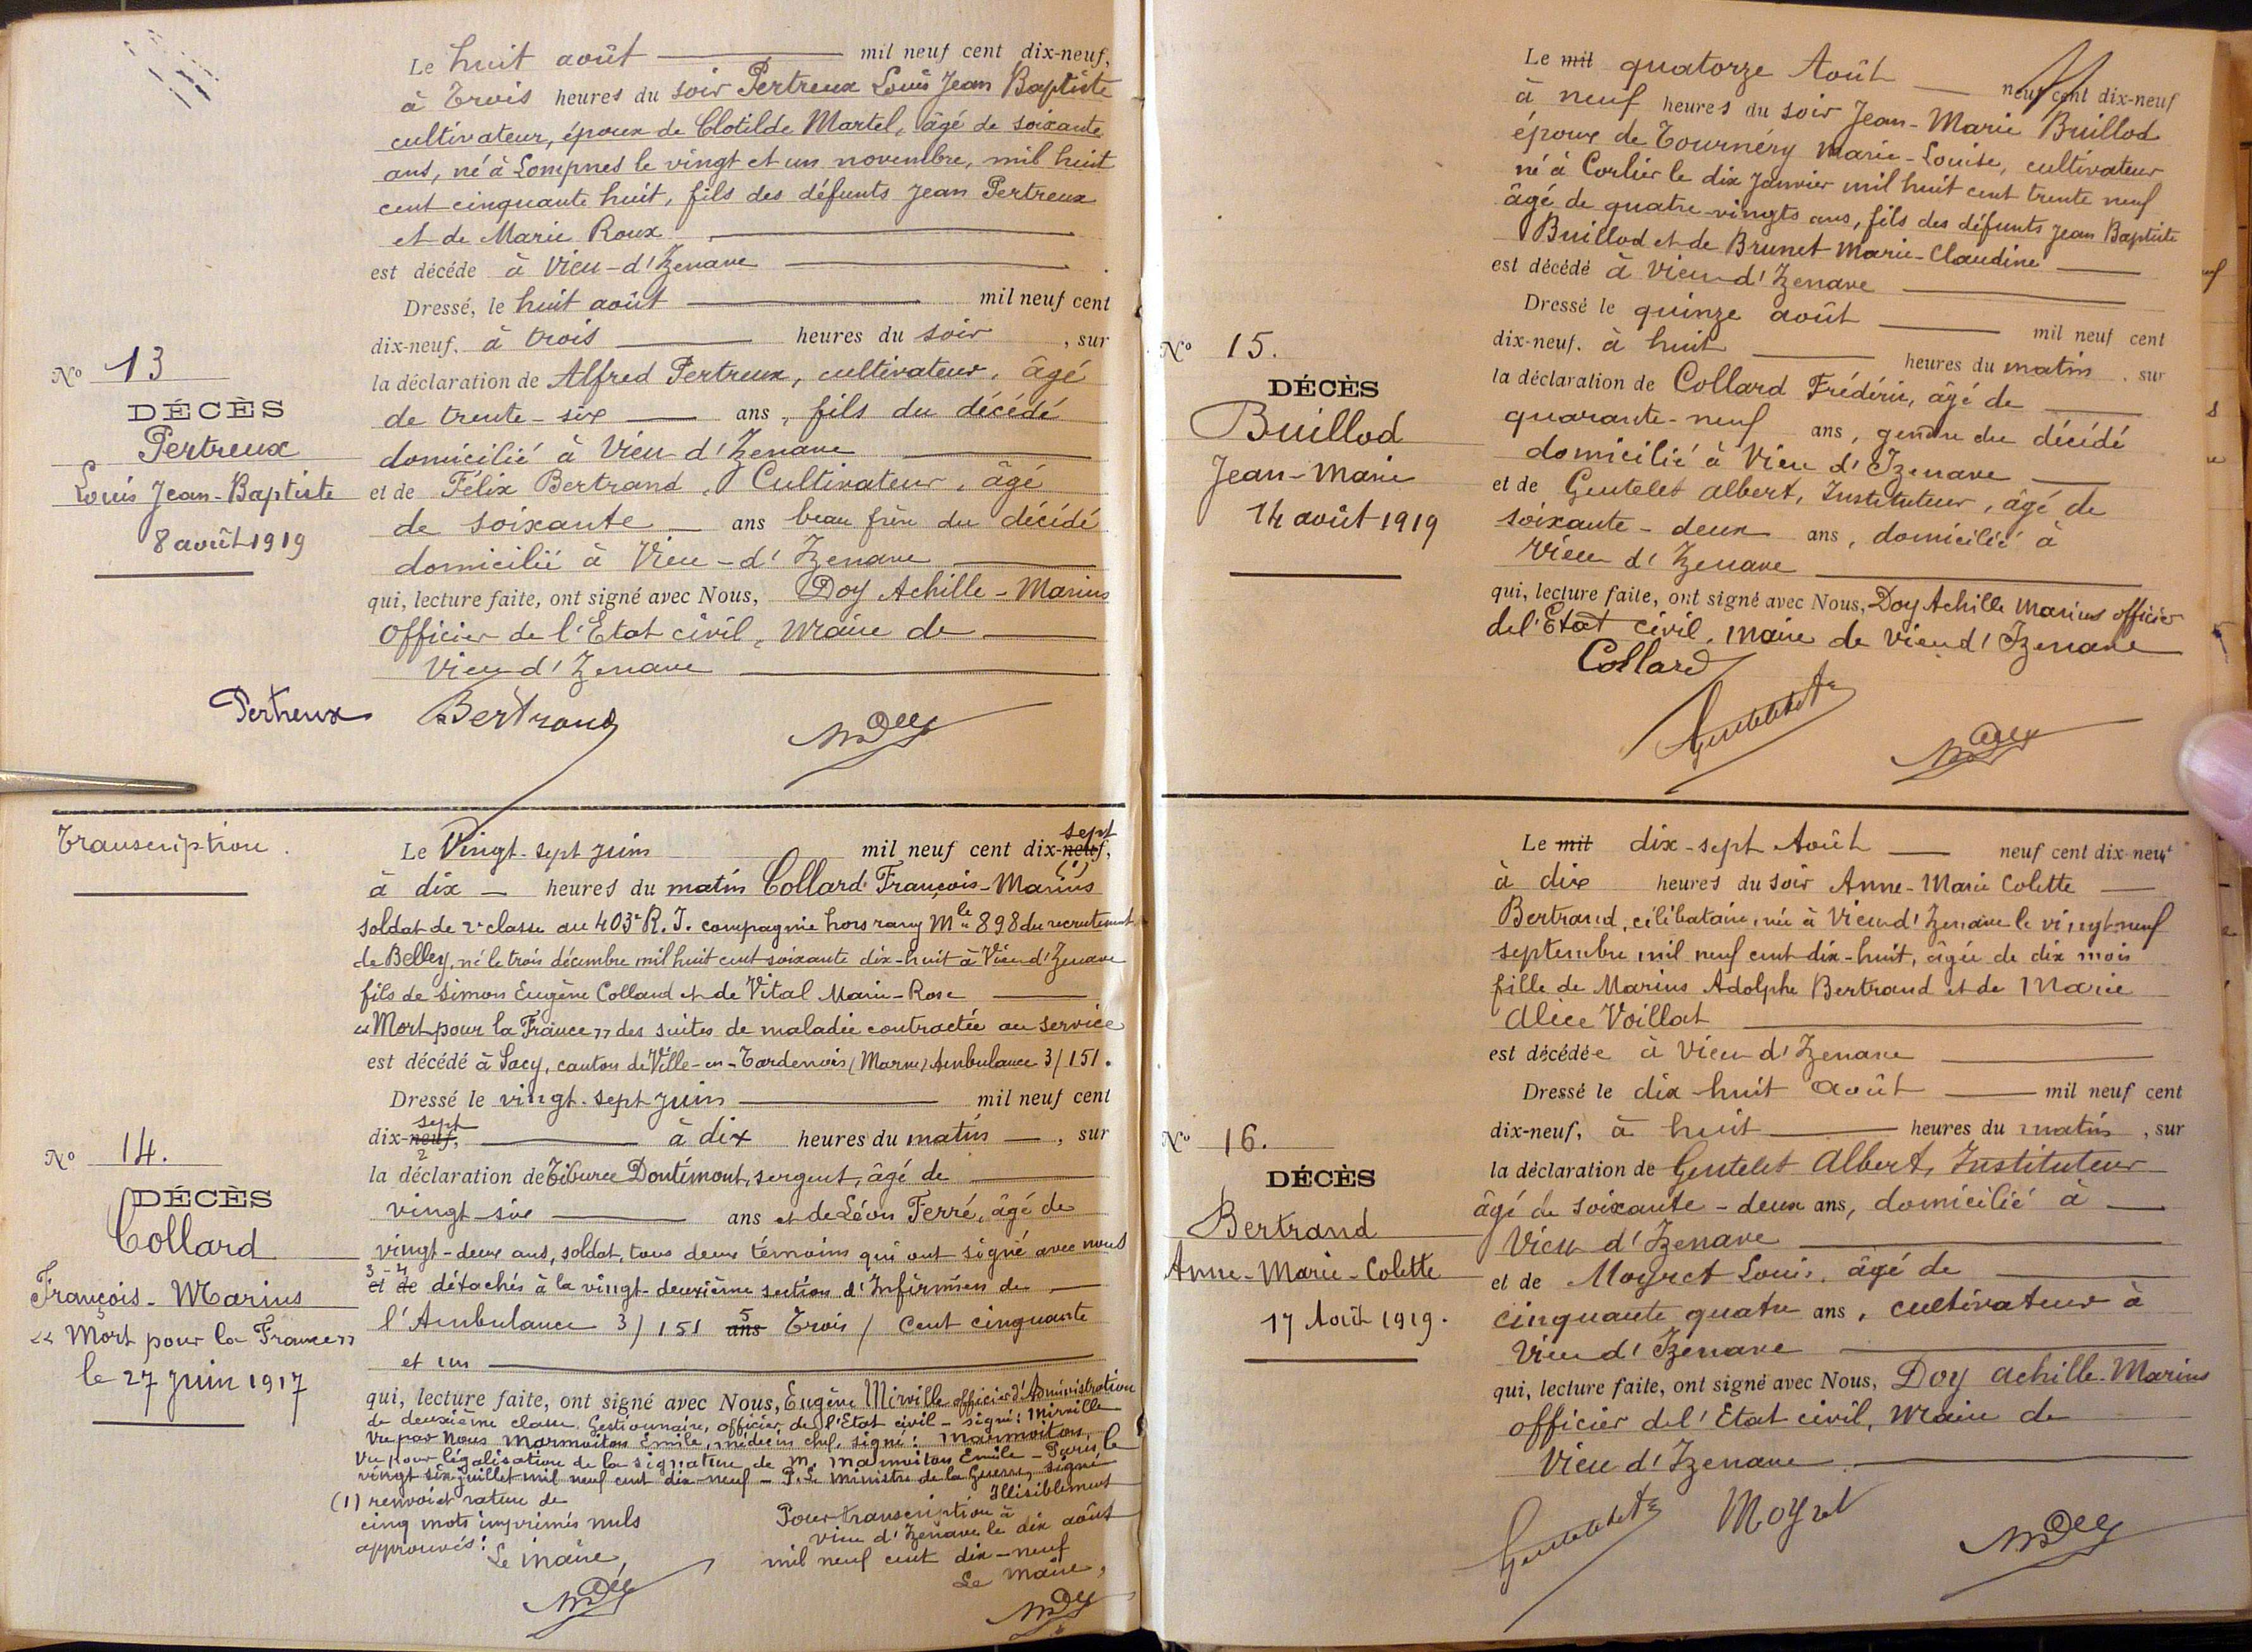 Le huit août mil neuf cent dix-neuf,
à trois heures du soir Pertreux Louis Jean Baptiste
cultivateur, époux de Clotilde Martel, âgé de soixante
ans, né à Lompnes le vingt et un novembre, mil huit
cent cinquante huit, fils des défunts Jean Pertreux
et de Marie Roux
est décédé à Vieu-d'Izenave
Dressé, le huit août mil neuf cent
dix-neuf, à trois heures du soir, sur
la déclaration de Alfred Pertreux, cultivateur, âgé
de trente-six ans, fils du décédé
domicilié à Vieu d'Izenave
et de Félix Bertrand, Cultivateur, âgé
de soixante ans beau frère du décédé
domicilié à Vieu-d'Izenave
qui, lecture faite, ont signé avec Nous, Doy Achille-Marius
Officier de l'Etat civil, Maire de
Vieu d'Izenave
Pertreux Bertrand
N° 13
DÉCÈS
Pertreux
Louis Jean-Baptiste
8 août 1919
Transcription.
Le Vingt-sept juin mil neuf cent dix-neuf, sept
(1)
à dix heures du matin Collard François-Marius
soldat de 2e classe au 403e R.I. compagnie hors rang Mle 898 du recrutement
de Belley, né le trois décembre mil huit cent soixante dix-huit à Vieu d'Izenave
fils de Simon Eugène Collard et de Vital Marie-Rose
"Mort pour la France" des suites de maladie contractée au service
est décédé à Sacy, canton de Ville-en-Tardenois (Marne) Ambulance 3/151.
Dressé le vingt-sept juin mil neuf cent
dix-neuf, sept à dix heures du matin, sur
2
la déclaration de Tiburce Dontémont, sergent, âgé de
vingt-six ans et de Léon Ferré, âgé de
vingt-deux ans, soldat, tous deux témoins qui ont signé avec nous
3-4
et de détachés à la vingt-deuxième section d'Infirmiers de
l'Ambulance 3/151 ans 5 Trois / Cent cinquante
et un
qui, lecture faite, ont signé avec Nous, Eugène Mirville officier d'Administration
de deuxième classe. Gestionnaire, officier de l'Etat civil - signé: Mirville
Vu par Nous Marmoiton Emile, médecin chef, signé: Marmoiton,
Vu pour légalisation de la signature de M. Marmoiton Emile - Paris le
vingt six juillet mil neuf cent dix-neuf - P. le Ministre de la Guerre, signé
Illisiblement
(1) renvoi et rature de
cinq mots imprimés nuls
approuvés:
Le Maire,
Pour transcription à
Vieu d'Izenave le dix août
mil neuf cent dix-neuf
Le Maire,
N° 14.
DÉCÈS
Collard
François-Marius
"Mort pour la France"
le 27 Juin 1917
Le mil quatorze Août neuf cent dix-neuf
à neuf heures du soir Jean-Marie Buillod
époux de Tournéry Marie-Louise, cultivateur
né à Corlier le dix Janvier mil huit cent trente neuf
âgé de quatre-vingts ans, fils des défunts Jean Baptiste
Buillod et de Brunet Marie-Claudine
est décédé à Vieu d'Izenave
Dressé le quinze août mil neuf cent
dix-neuf, à huit heures du matin, sur
la déclaration de Collard Frédéric, âgé de
quarante-neuf ans, gendre du décédé
domicilié à Vieu d'Izenave
et de Gentelet Albert, Instituteur, âgé de
soixante-deux ans, domicilié à
Vieu d'Izenave
qui, lecture faite, ont signé avec Nous, Doy Achille Marius officier
de l'Etat civil, Maire de Vieu d'Izenave
Collard
N° 15.
DÉCÈS
Buillod
Jean-Marie
14 août 1919
Le mil dix-sept Août neuf cent dix-neuf
à dix heures du soir Anne-Marie Colette
Bertrand, célibataire, née à Vieu d'Izenave le vingt-neuf
septembre mil neuf cent dix-huit, âgée de dix mois
fille de Marius Adolphe Bertrand et de Marie
Alice Voillat
est décédée à Vieu d'Izenave
Dressé le dix huit Août mil neuf cent
dix-neuf, à huit heures du matin, sur
la déclaration de Gentelet Albert, Instituteur
âgé de soixante-deux ans, domicilié à
Vieu d'Izenave
et de Moyret Louis, âgé de
cinquante quatre ans, cultivateur à
Vieu d'Izenave
qui, lecture faite, ont signé avec Nous, Doy Achille-Marius
officier de l'Etat civil, Maire de
Vieu d'Izenave
Moyret
N° 16.
DÉCÈS
Bertrand
Anne-Marie-Colette
17 Août 1919.